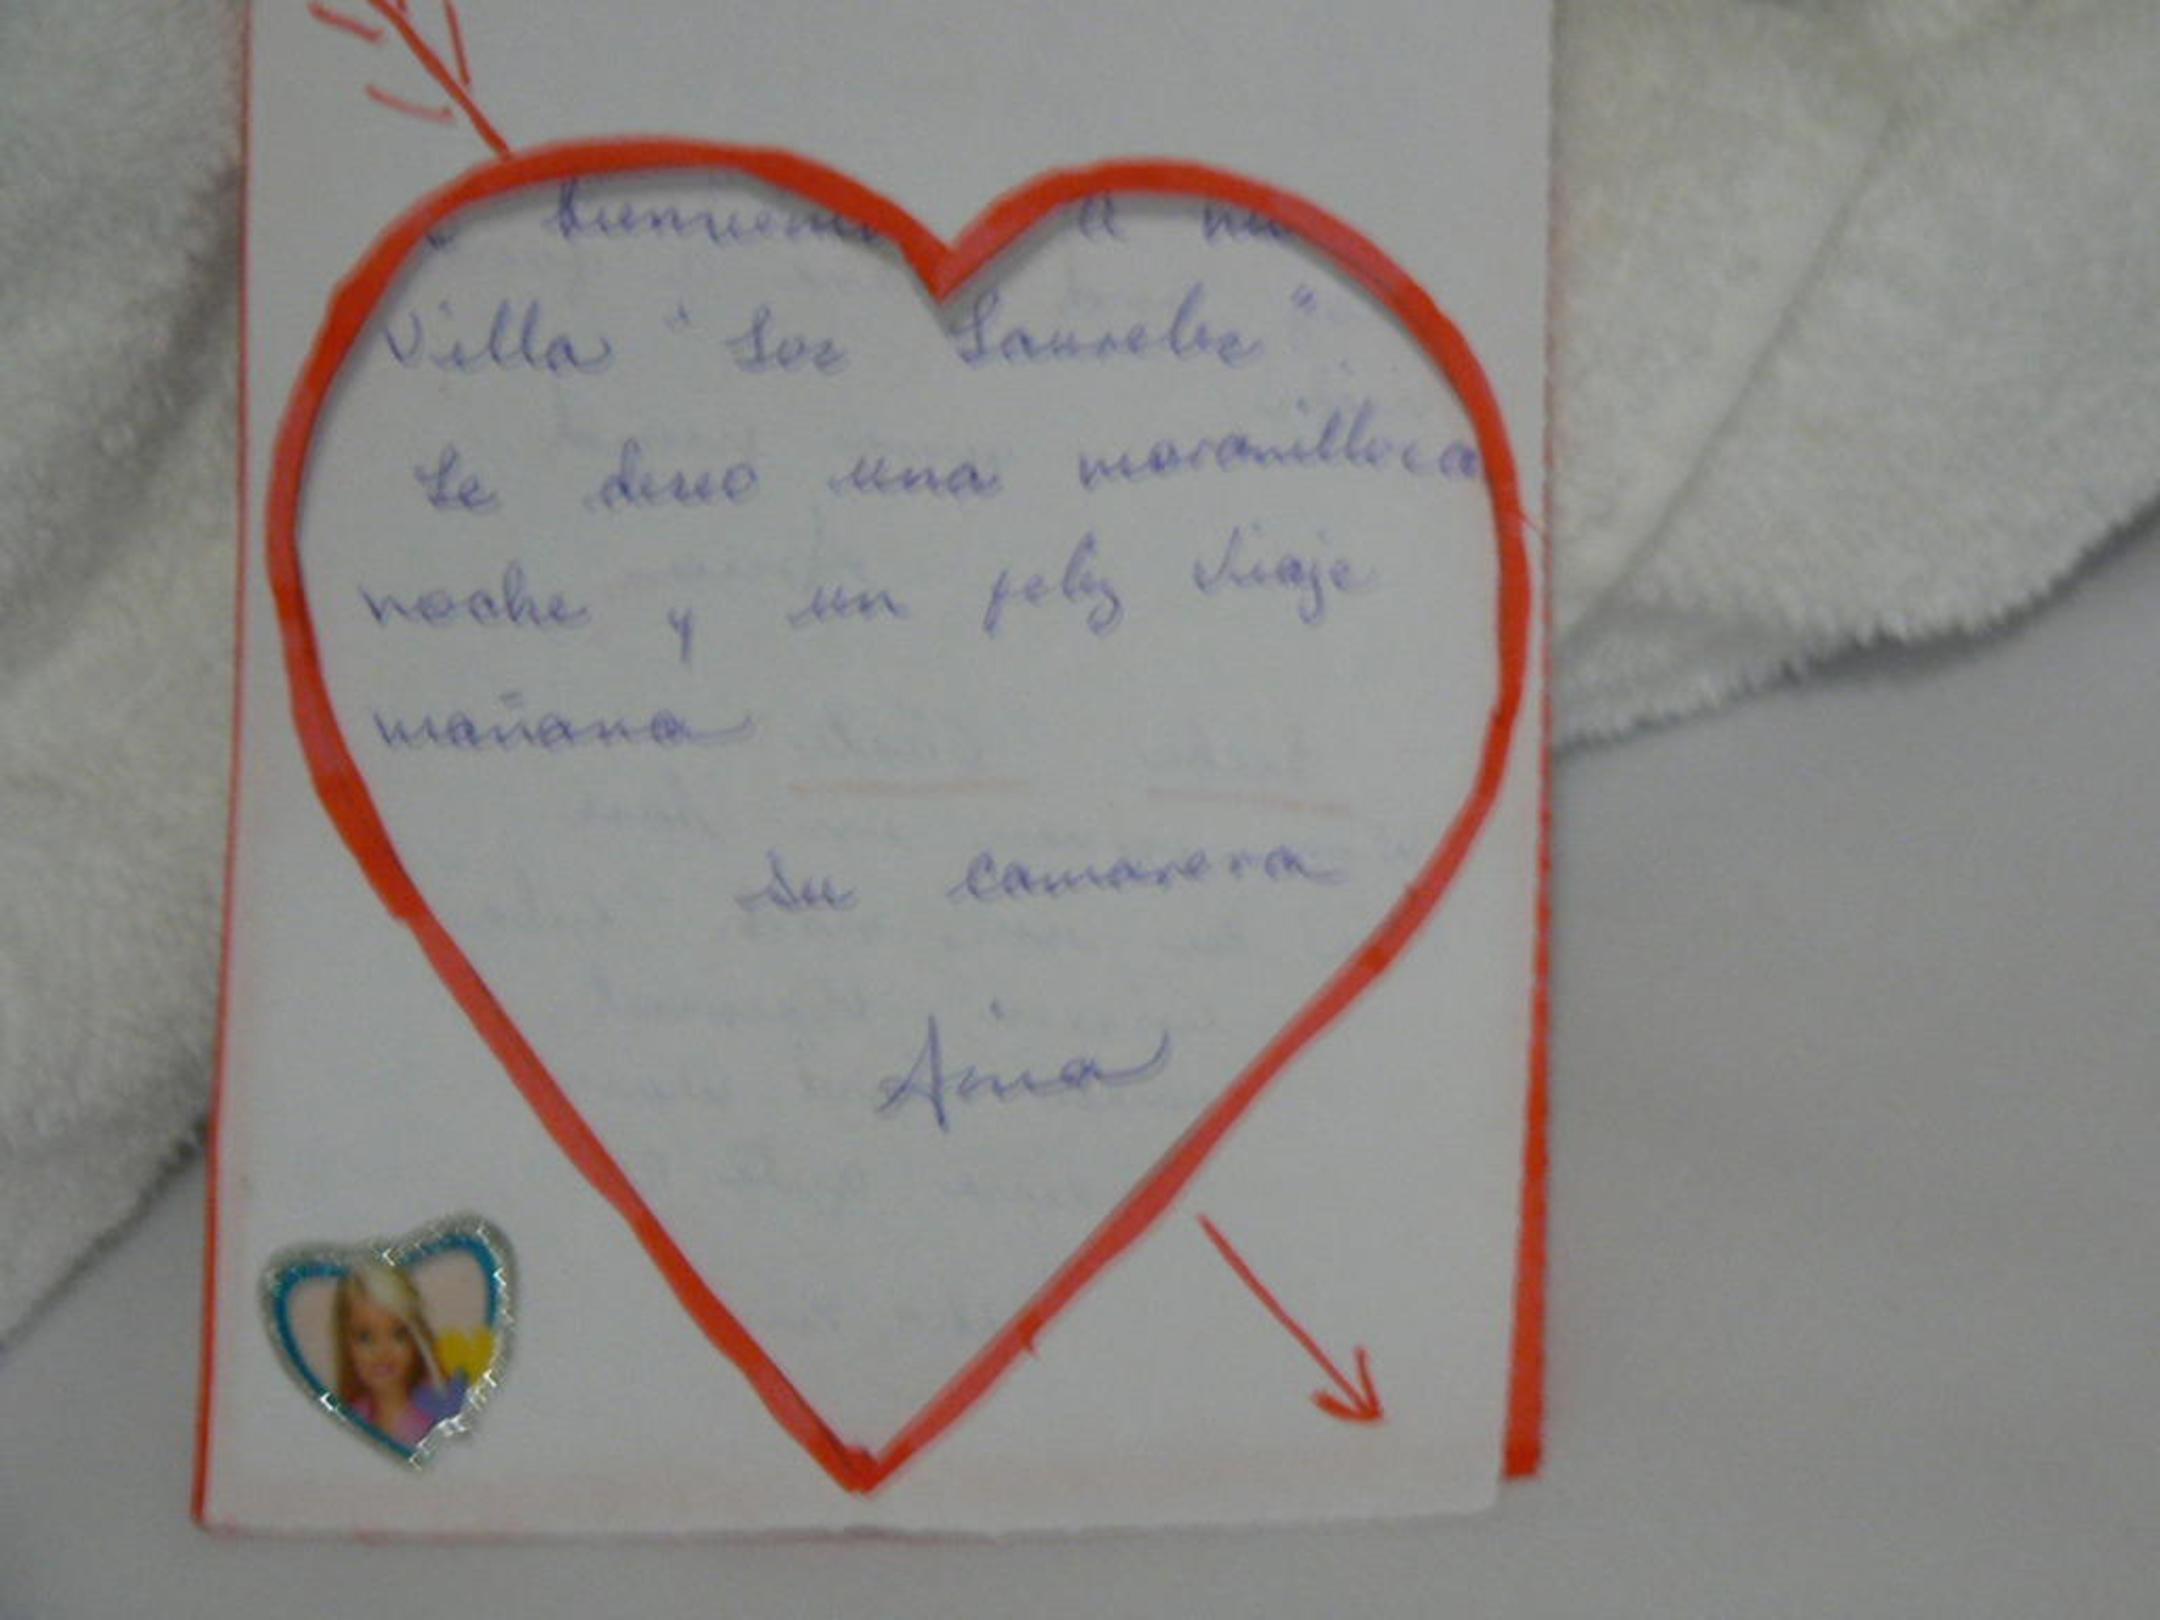 a
Villa "Los Laureles"
Le deseo una maravillosa
noche y un feliz viaje
mañana
Su camarera
Aina